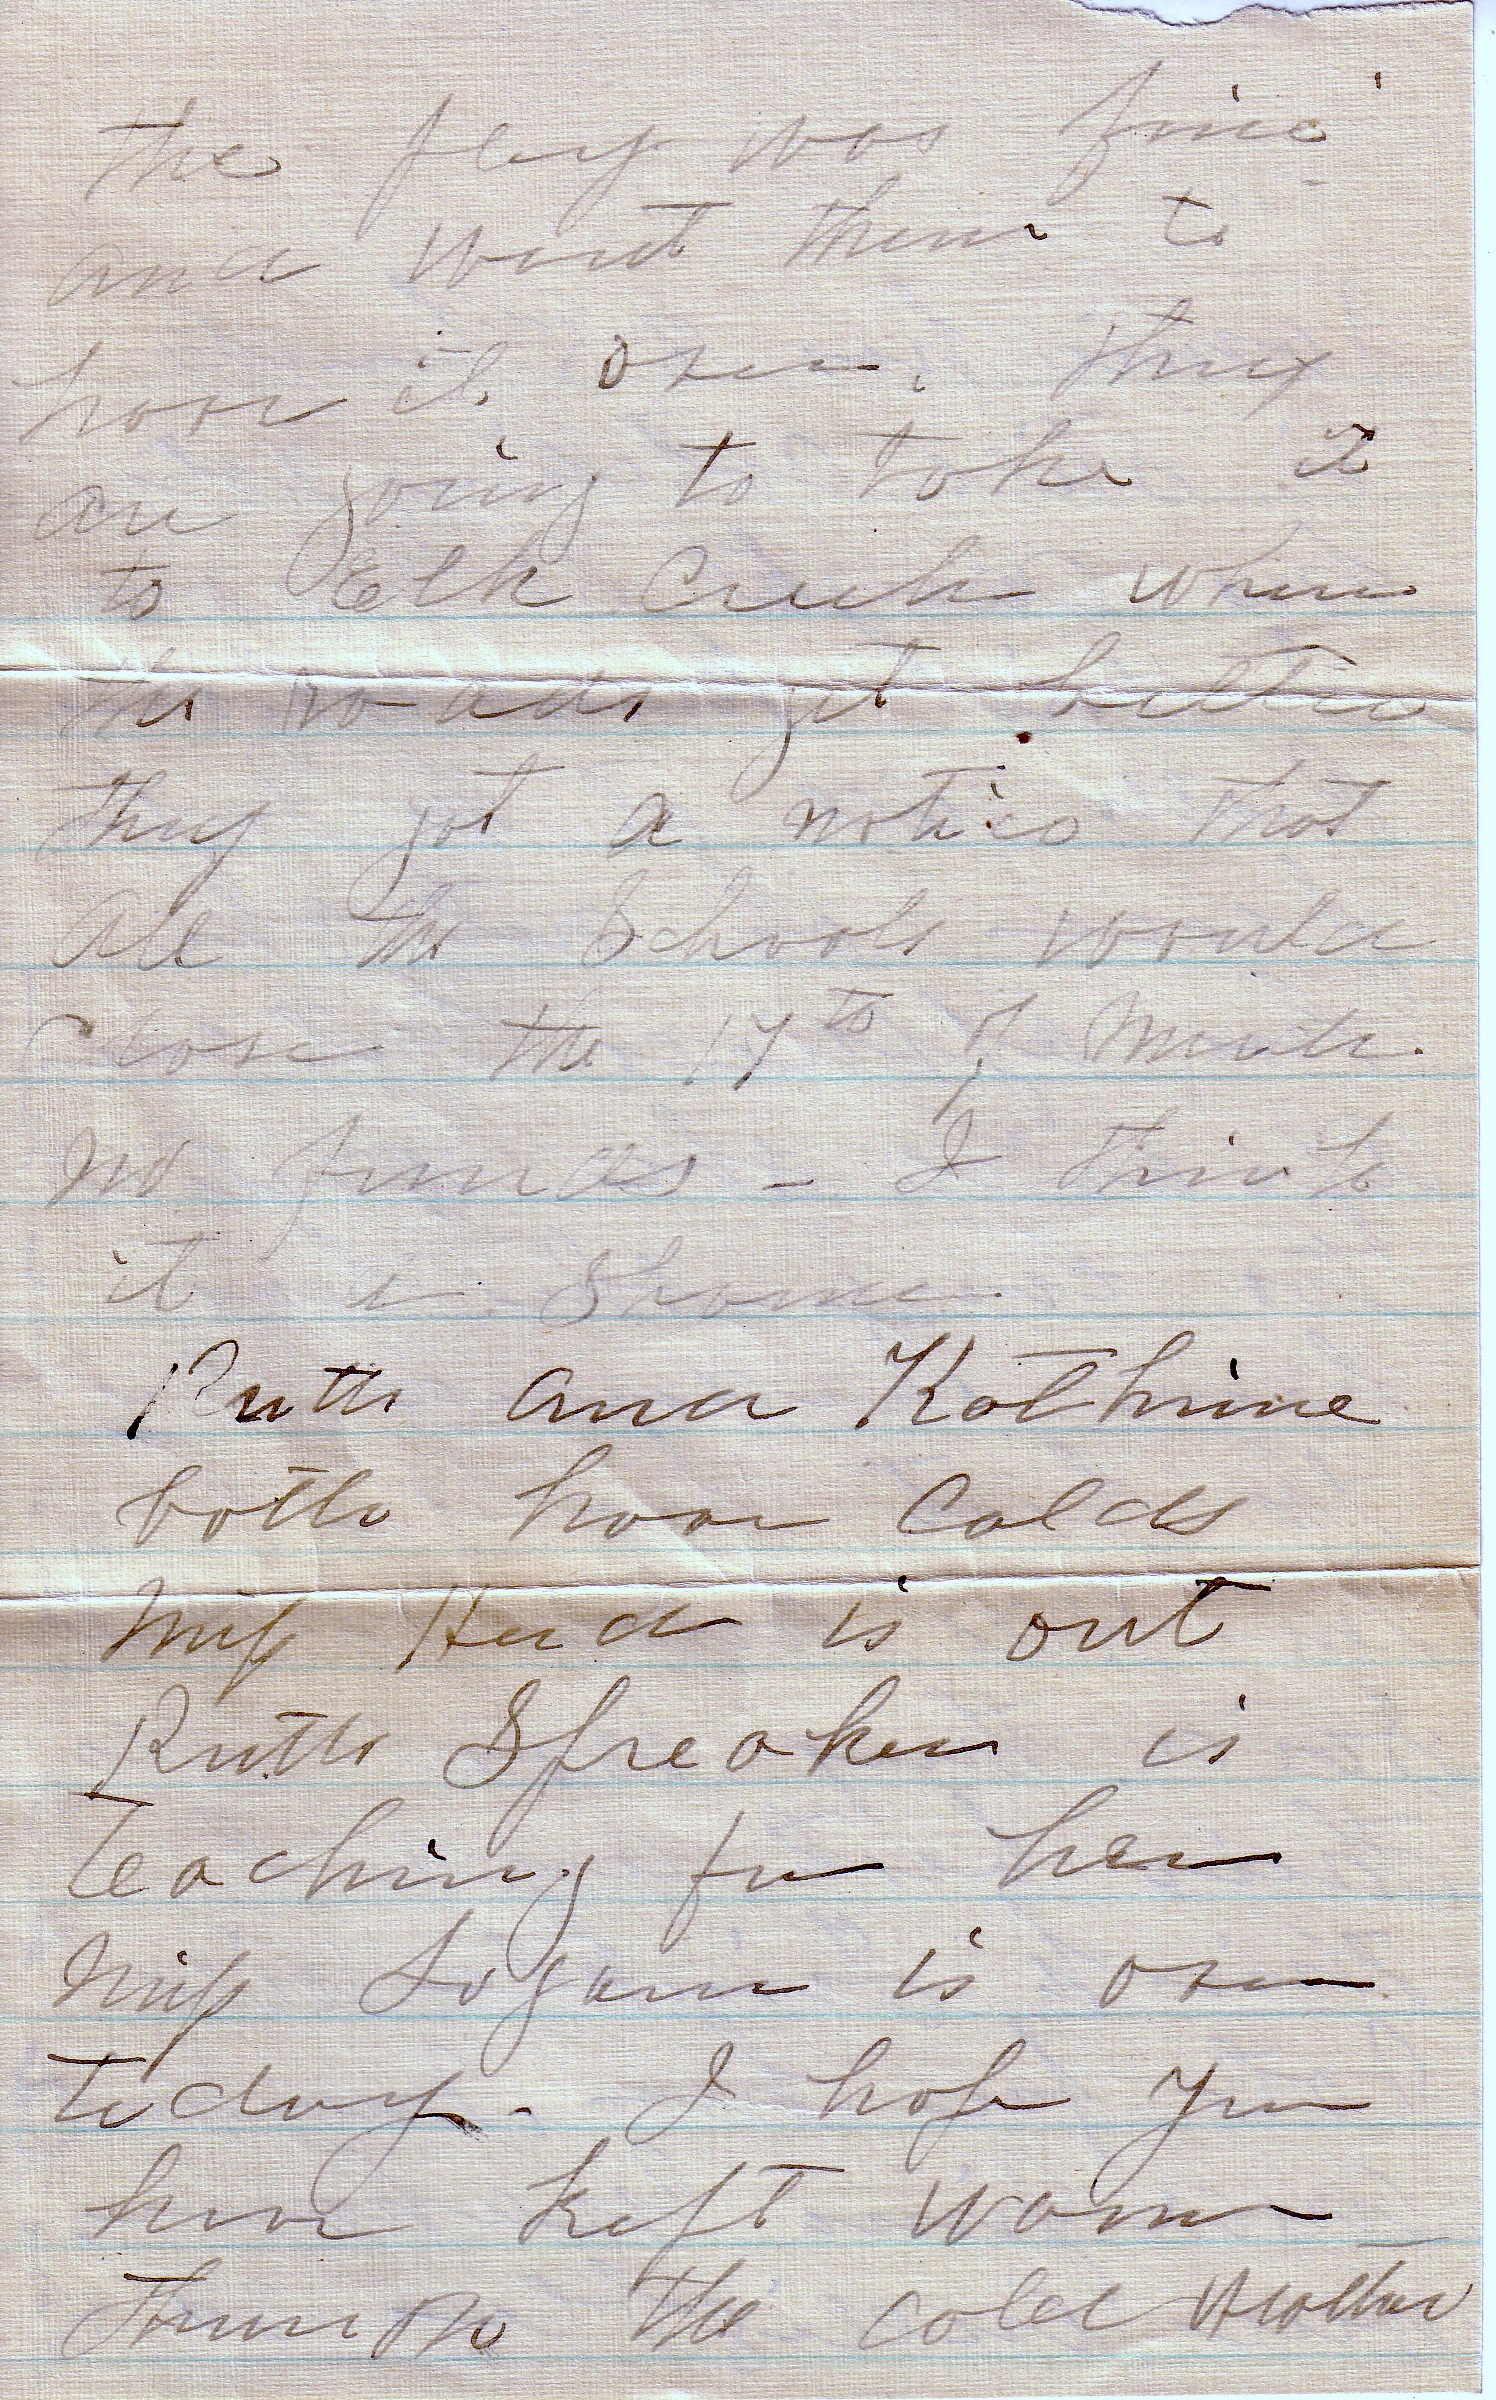 the play was fine
and want them to
have it over. They
are going to take it
to Elk Creek when
the roads get better
They got a notice that
all the Schools would
close the 17th of March.
no funds - I think
it a shame
Ruth and Kathrine
both have colds
Miss Head is out
Ruth Spreaker is
teaching for her
Miss Logan is over
today. - I hope you
have kept warm
through the cold weather